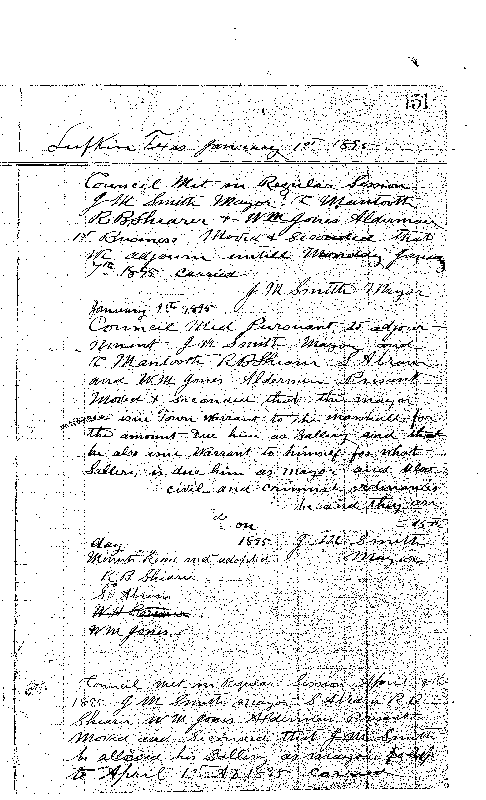 151
Lufkin Texas January 1st 1895
Council Met in Regular Session
J M Smith Mayor
R. B. Shearer & W M Jones Aldermen
1st Business Moved & Seconded that
We adjourn untill Monday
7th 1895 carried
J M Smith Mayor
January 1895
Council Met Pursuant to adjour
nment J M Smith Mayor and
R B Shearer S Abram
and W M Jones Aldermen Present
Moved & Seconded that the mayor
issue Town Warrant to the marshall for
the amount Due him as Sallery and that
he also issue Warrant to himself for what
Sallery is due him as Mayor and
civil and criminal ordinances
be and they are
on
day 1895 J M Smith
Minutes Read and adopted Mayor
R B Shearer
S Abram
W M Jones
Council Met in Regular Session April
1895 J M Smith Mayor S Abram R B
Shearer W M Jones Aldermen Present
Moved and Seconded that J M Smith
be allowed his Sallery as mayor up
to April 1st AD 1895 carried